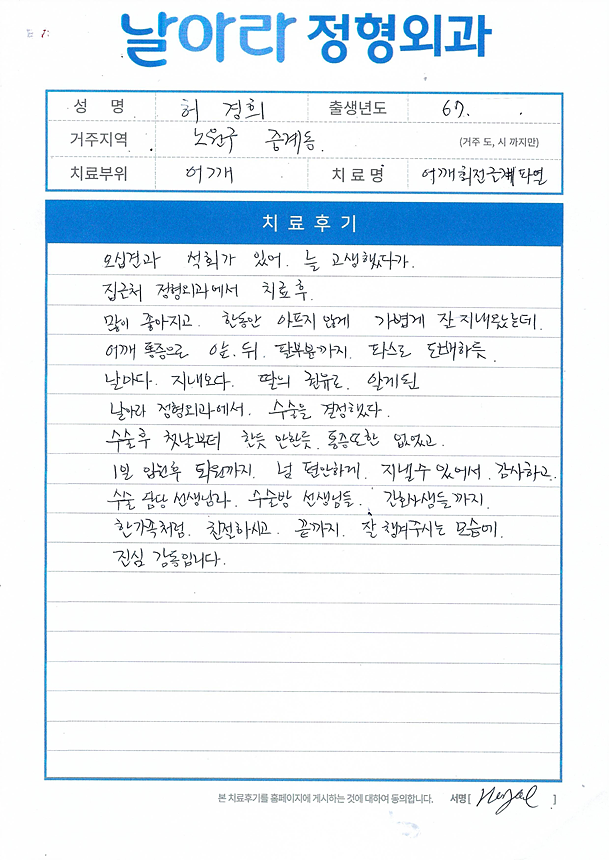 날아라 정형외과
성 명 허 경희 출생년도 67. .
거주지역 노원구 중계동. (거주 도, 시 까지만)
치료부위 어깨 치료명 어깨 회전근개 파열
치료후기
오십견과 석회가 있어. 늘 고생했다가.
집근처 정형외과에서 치료후.
많이 좋아지고. 한동안 아프지 않게 가볍게 잘 지내왔는데.
어깨 통증으로 앞.뒤. 팔부분까지. 파스로 도배하듯
날마다. 지내오다. 딸의 권유로 알게된
날아라 정형외과에서. 수술을 결정했다.
수술후 첫날부터 한듯 안한듯. 통증또한 없었고.
1일 입원후 퇴원까지. 넘 편안하게. 지낼수 있어서. 감사하고.
수술 담당 선생님과. 수술방 선생님들. 간호사샘들 까지.
한가족처럼. 친절하시고. 끝까지. 잘 챙겨주시는 모습에.
진심 감동입니다.
본 치료후기를 홈페이지에 게시하는 것에 대하여 동의합니다. 서명 [ ]